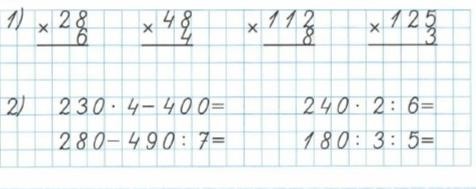 1) × 28 × 48 × 112 × 125
6 4 8 3
2) 230 · 4 − 400 = 240 · 2 : 6 =
280 − 490 : 7 = 180 : 3 : 5 =